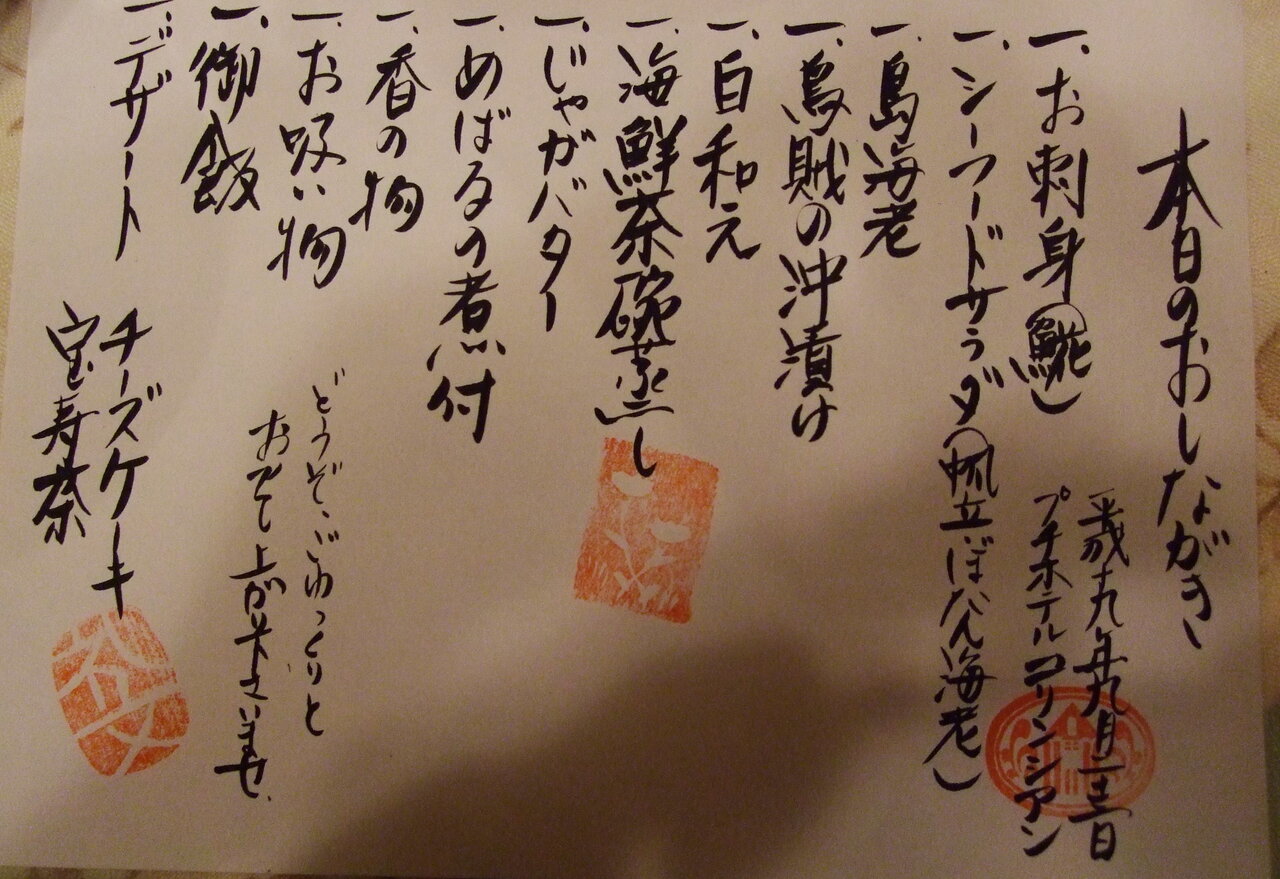 本日のおしながき
平成十九年九月二十三日
プチホテルコリンシアン
一、お刺身(鯎)
一、シーフードサラダ(帆立ぼたん海老)
一、島海老
一、烏賊の沖漬け
一、白和え
一、海鮮茶碗蒸し
一、じゃがバター
一、めばるの煮付
一、香の物
一、お吸い物
一、御飯
一、デザート チーズケーキ
宝寿茶
どうぞ、ごゆっくりと
お召し上がり下さいませ